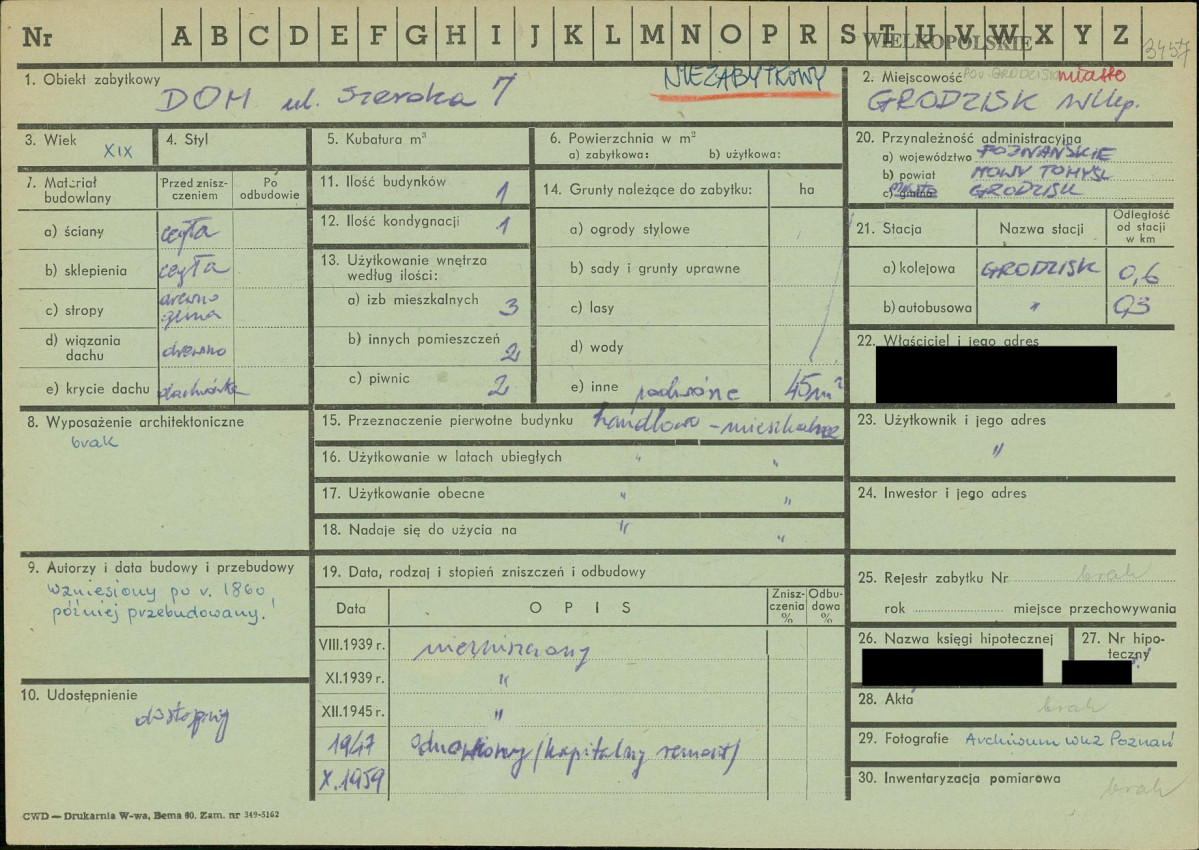 Nr A B C D E F G H I J K L M N O P R S T U V W X Y Z 3457
WIELKOPOLSKIE
1. Obiekt zabytkowy
DOM ul. Szeroka 7
NIEZABYTKOWY
2. Miejscowość POW. GRODZISK miasto
GRODZISK Wlkp.
3. Wiek XIX
4. Styl
5. Kubatura m³
6. Powierzchnia w m²
a) zabytkowa: b) użytkowa:
20. Przynależność administracyjna
a) województwo POZNAŃSKIE
b) powiat NOWY TOMYŚL
c) gmina miasto GRODZISK
7. Materiał budowlany
Przed zniszczeniem
Po odbudowie
a) ściany cegła
b) sklepienia cegła
c) stropy drewno glina
d) wiązania dachu drewno
e) krycie dachu dachówka
11. Ilość budynków 1
12. Ilość kondygnacji 1
13. Użytkowanie wnętrza według ilości:
a) izb mieszkalnych 3
b) innych pomieszczeń 2
c) piwnic 2
14. Grunty należące do zabytku: ha
a) ogrody stylowe
b) sady i grunty uprawne
c) lasy
d) wody
e) inne podwórze 45m²
21. Stacja
Nazwa stacji
Odległość od stacji w km
a) kolejowa GRODZISK 0,6
b) autobusowa " 0,5
22. Właściciel i jego adres
8. Wyposażenie architektoniczne
brak
15. Przeznaczenie pierwotne budynku handlowo - mieszkalne
16. Użytkowanie w latach ubiegłych " "
17. Użytkowanie obecne " "
18. Nadaje się do użycia na " "
23. Użytkownik i jego adres
"
24. Inwestor i jego adres
9. Autorzy i data budowy i przebudowy
Wzniesiony po r. 1860,
później przebudowany.
19. Data, rodzaj i stopień zniszczeń i odbudowy
Data
OPIS
Zniszczenia %
Odbudowa %
VIII.1939 r. niezniszczony
XI.1939 r. "
XII.1945 r. "
1947 Odnowiony (kapitalny remont)
X.1959
10. Udostępnienie
dostępny
25. Rejestr zabytku Nr brak
rok miejsce przechowywania
26. Nazwa księgi hipotecznej
27. Nr hipoteczny
28. Akta brak
29. Fotografie Archiwum WKZ Poznań
30. Inwentaryzacja pomiarowa brak
CWD — Drukarnia W-wa, Bema 60. Zam. nr 349-5162